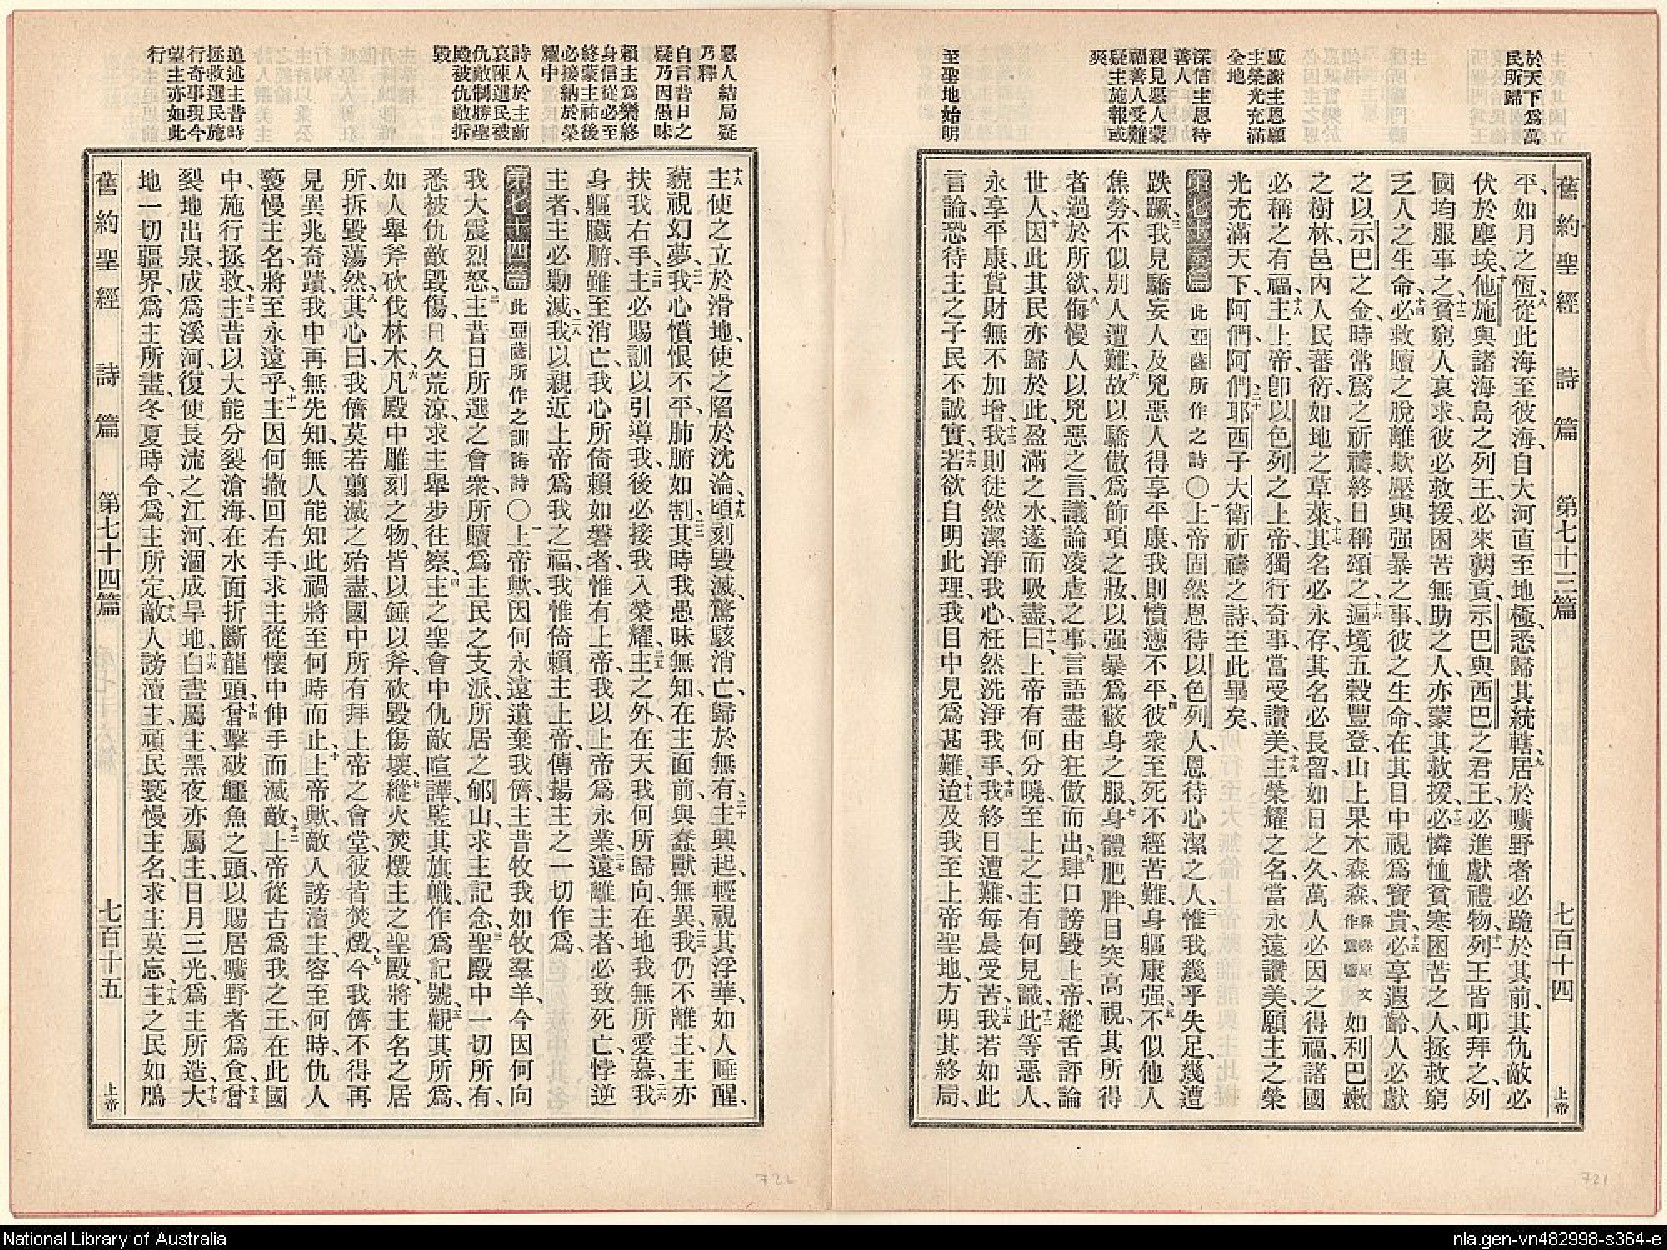 於天下爲萬
民所歸
感謝主恩願
主榮光充滿
全地
深信主恩待
善人
親見惡人蒙
福善人受難
疑主施報或
爽
至聖地始明
舊約聖經 詩篇 第七十三篇 七百十四 上帝
平、如月之恆、八從此海至彼海、自大河直至地極、悉歸其統轄、九居於曠野者必跪於其前、其仇敵必
伏於塵埃、十他施與諸海島之列王、必來朝貢、示巴與西巴之君王、必進獻禮物、十一列王皆叩拜之、列
國均服事之、十二貧窮人哀求、彼必救援、困苦無助之人、亦蒙其救援、十三必憐恤貧寒困苦之人、拯救窮
乏人之生命、十四必救贖之脫離欺壓與强暴之事、彼之生命、在其目中視爲寶貴、十五必享遐齡、人必獻
之以示巴之金、時常爲之祈禱、終日稱頌之、十六遍境五穀豐登、山上果木森森、森森原文作震響如利巴嫩
之樹林、邑內人民蕃衍、如地之草萊、十七其名必永存、其名必長留、如日之久、萬人必因之得福、諸國
必稱之有福、十八主上帝、卽以色列之上帝、獨行奇事、當受讚美、十九主榮耀之名、當永遠讚美、願主之榮
光充滿天下、阿們、阿們、二十耶西子大衛祈禱之詩、至此畢矣、
第七十三篇 此亞薩所作之詩○一上帝固然恩待以色列人、恩待心潔之人、二惟我幾乎失足、幾遭
跌蹶、三我見驕妄人及兇惡人得享平康、我則憤懣不平、四彼衆至死不經苦難、身軀康强、五不似他人
焦勞、不似別人遭難、六故以驕傲爲飾項之妝、以强暴爲蔽身之服、七身體肥胖、目突高視、其所得
者過於所欲、八侮慢人以兇惡之言、議論凌虐之事、言語盡由狂傲而出、九肆口謗毀上帝、縱舌評論
世人、十因此其民亦歸於此、盈滿之水、遂而吸盡、十一曰、上帝有何分曉、至上之主有何見識、十二此等惡人、
永享平康、貨財無不加增、十三我則徒然潔淨我心、枉然洗淨我手、十四我終日遭難、每晨受苦、十五我若如此
言論、恐待主之子民不誠實、十六若欲自明此理、我目中見爲甚難、十七迨及我至上帝聖地、方明其終局、
惡人結局疑
乃釋
自言昔日之
疑乃因愚昧
賴主爲樂終
身信從必至
終蒙主祐後
必接納於榮
耀中
詩人於主前
哀陳選民被
仇敵制勝聖
殿被仇敵拆
毀
追述主昔時
拯救選民施
行奇事現今
望主亦如此
行
十八主使之立於滑地、使之陷於沈淪、十九頃刻毀滅、驚駭消亡、歸於無有、二十主興起、輕視其浮華、如人睡醒、
藐視幻夢、二一我心憤恨不平、肺腑如割、二二其時我愚昧無知、在主面前、與蠢獸無異、二三我仍不離主、主亦
扶我右手、二四主必賜訓以引導我、後必接我入榮耀、二五主之外、在天我何所歸向、在地我無所愛慕、二六我
身軀臟腑、雖至消亡、我心所倚賴如磐者、惟有上帝、我以上帝爲永業、二七遠離主者、必致死亡、悖逆
主者、主必勦滅、二八我以親近上帝爲我之福、我惟倚賴主上帝、傳揚主之一切作爲、
第七十四篇 此亞薩所作之訓誨詩○一上帝歟、因何永遠遺棄我儕、主昔牧我如牧羣羊、今因何向
我大震烈怒、二主昔日所選之會衆、所贖爲主民之支派、所居之郇山、求主記念、三聖殿中一切所有、
悉被仇敵毀傷、日久荒涼、求主舉步往察、四主之聖會中、仇敵喧譁、竪其旗幟、作爲記號、五觀其所爲、
如人舉斧砍伐林木、六凡殿中雕刻之物、皆以錘以斧、砍毀傷壞、七縱火焚燬主之聖殿、將主名之居
所、拆毀蕩然、八其心曰、我儕莫若翦滅之殆盡、國中所有拜上帝之會堂、彼皆焚燬、九今我儕不得再
見異兆奇蹟、我中再無先知、無人能知此禍將至何時而止、十上帝歟、敵人謗瀆主、容至何時、仇人
褻慢主名、將至永遠乎、十一主因何撤回右手、求主從懷中伸手而滅敵、十二上帝從古爲我之王、在此國
中、施行拯救、十三主昔以大能分裂滄海、在水面折斷龍頭、十四曾擊破鱷魚之頭、以賜居曠野者爲食、十五曾
裂地出泉、成爲溪河、復使長流之江河、涸成旱地、十六白晝屬主、黑夜亦屬主、日月三光、爲主所造、十七大
地一切疆界、爲主所畫、冬夏時令、爲主所定、十八敵人謗瀆主、頑民褻慢主名、求主莫忘、十九主之民如鳲
舊約聖經 詩篇 第七十四篇 七百十五 上帝
722
721
National Library of Australia
nla.gen-vn482998-s364-e